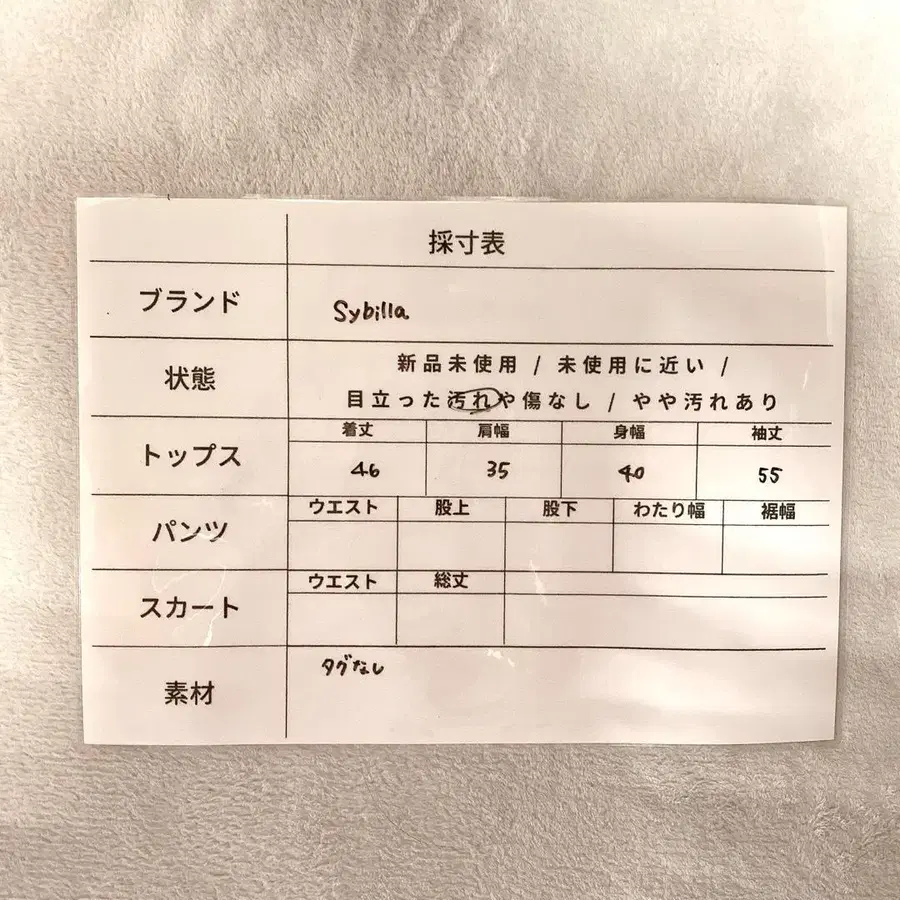 採寸表
ブランド
Sybilla
状態
新品未使用 / 未使用に近い /
目立った汚れや傷なし / やや汚れあり
トップス
着丈 肩幅 身幅 袖丈
46 35 40 55
パンツ
ウエスト 股上 股下 わたり幅 裾幅
スカート
ウエスト 総丈
素材
タグなし